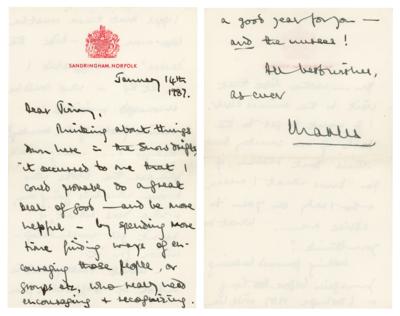 SANDRINGHAM, NORFOLK
January 14th
1987.
Dear Jimmy,
Thinking about things
down here in the Snow drifts
it occurred to me that I
could probably do a great
deal of good — and be more
helpful — by spending more
time finding ways of en-
couraging those people, or
groups etc, who really need
encouraging & recognizing.
a good year for you —
and the nurses!
All best wishes,
as ever
Charles